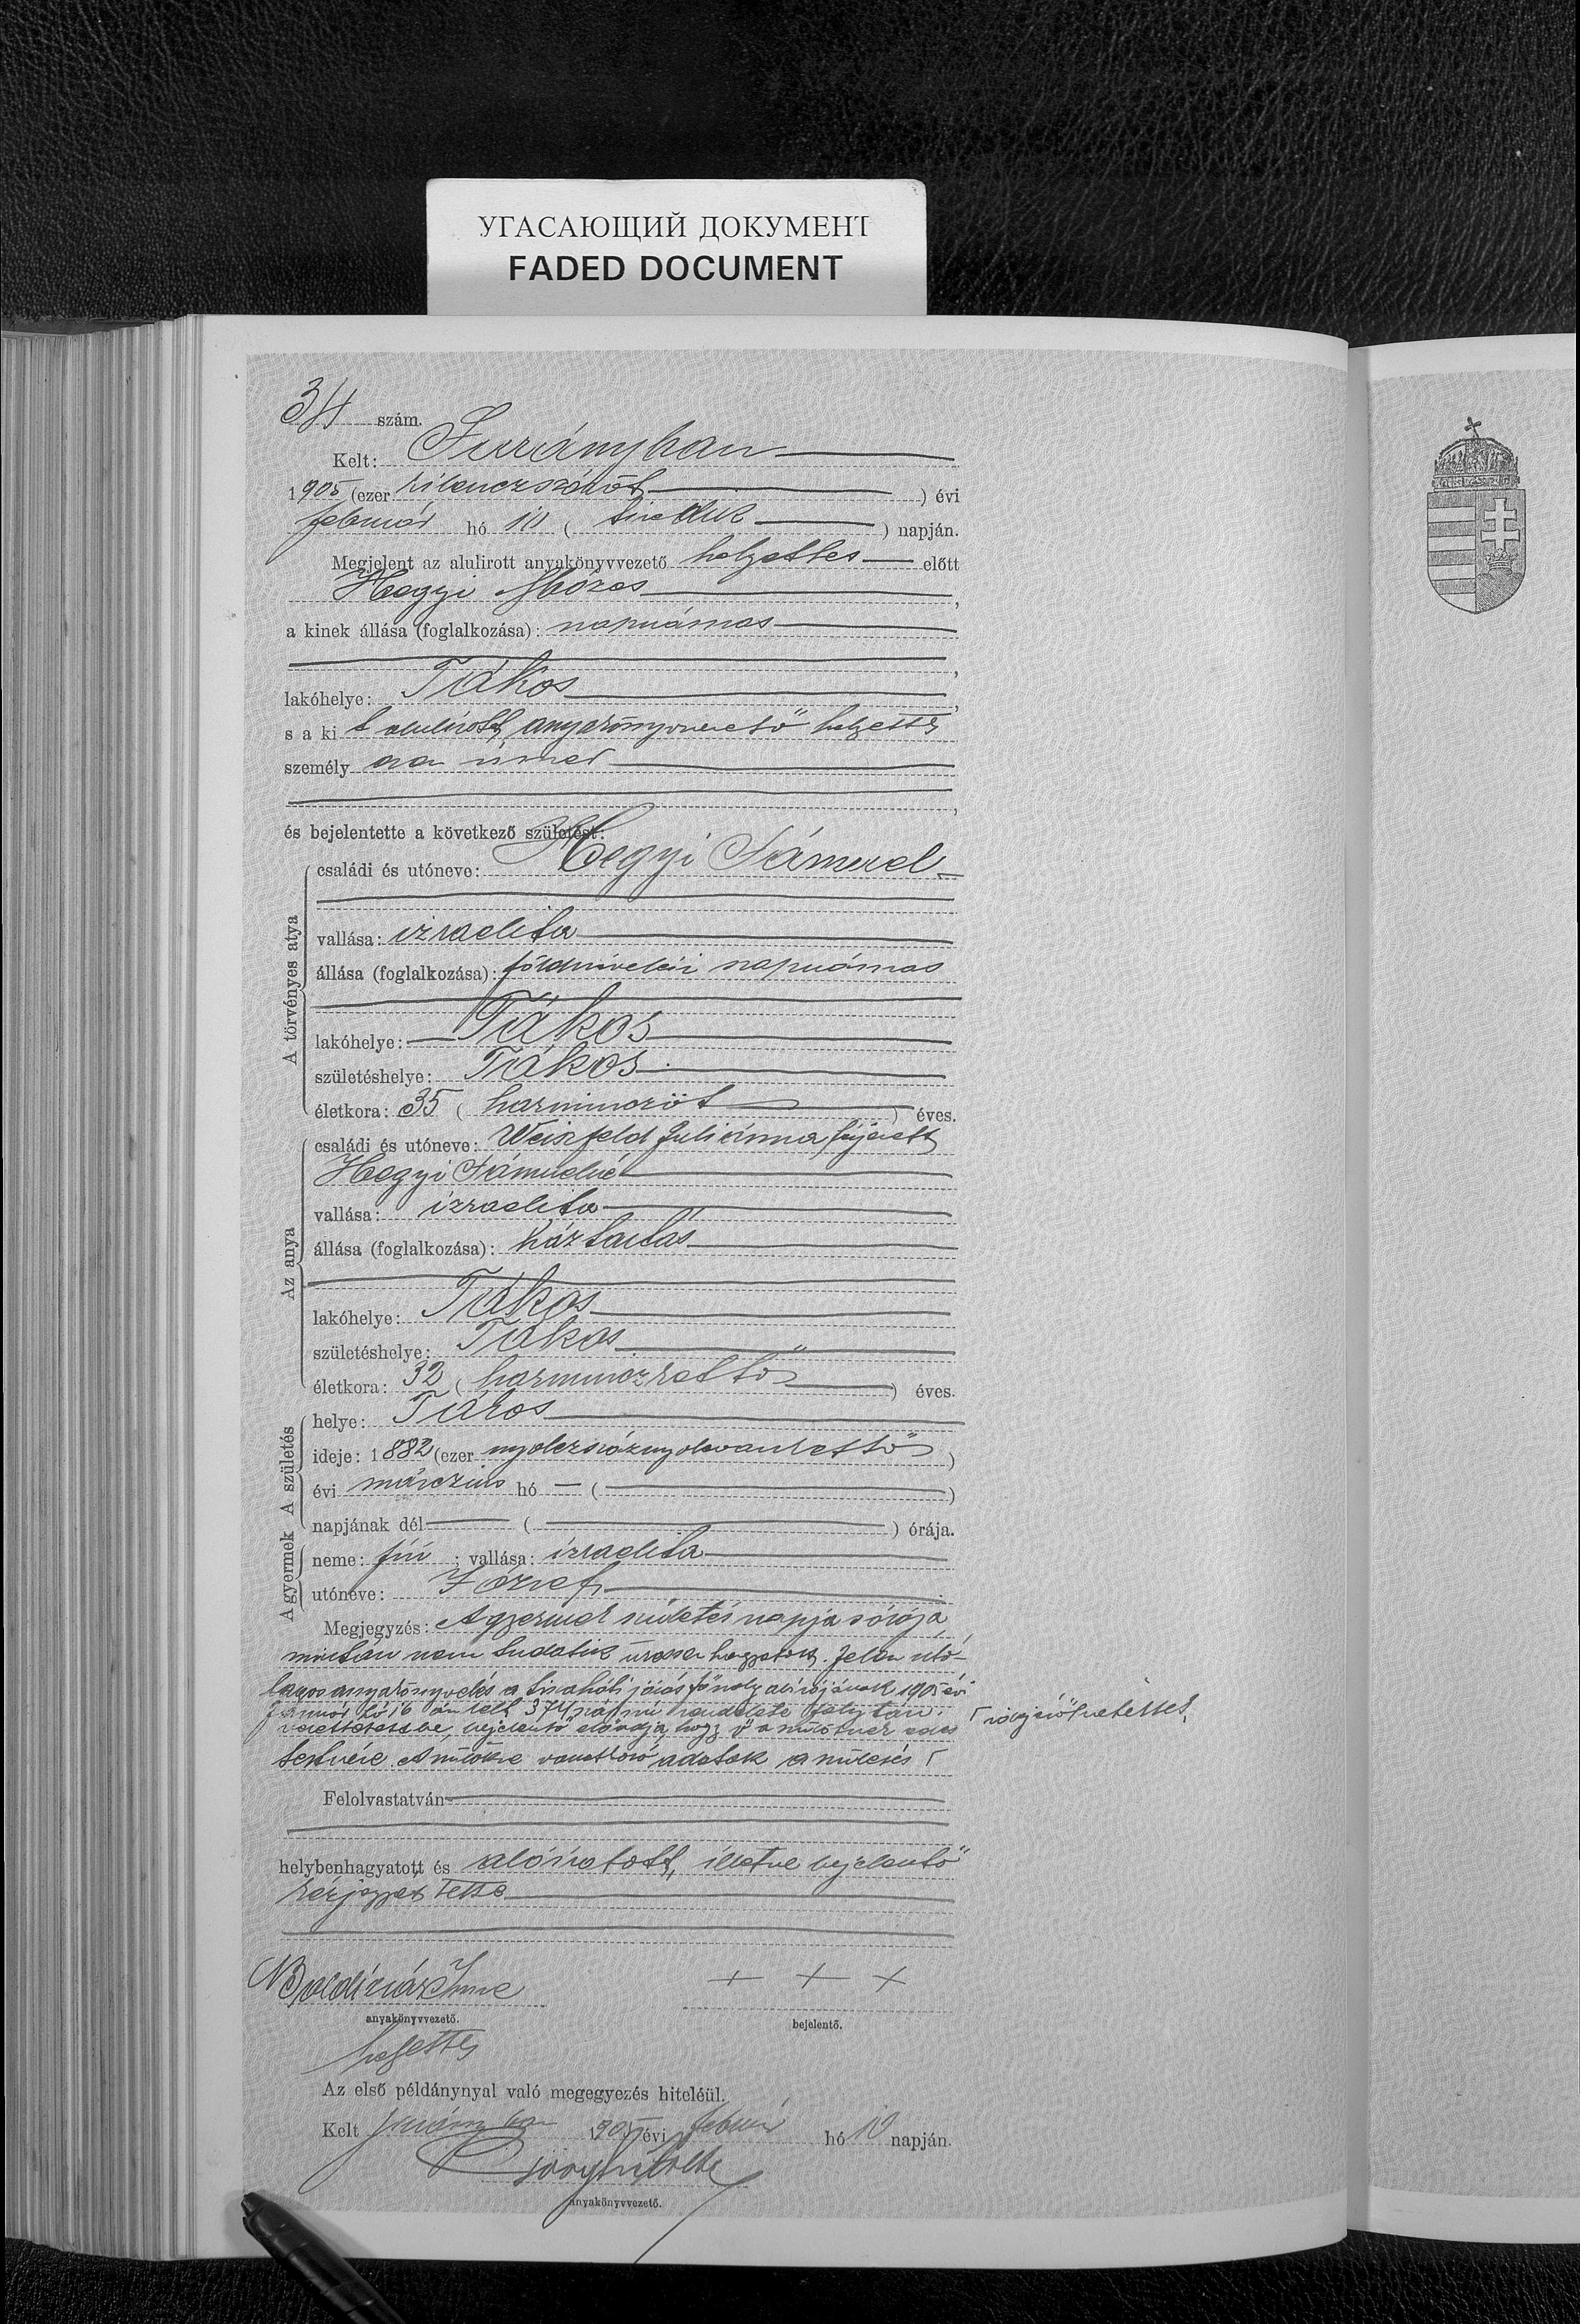 УГАСАЮЩИЙ ДОКУМЕНТ
FADED DOCUMENT
34 szám.
Kelt: Surányban
1905 (ezer kilenczszázöt) évi
február hó 10 (tizedik) napján.
Megjelent az alulirott anyakönyvvezető helyettes előtt
Hegyi Mózes,
a kinek állása (foglalkozása): napszámos
lakóhelye: Tákos,
s a ki t alulírott anyakönyvvezető helyettes
személy esen ismer
és bejelentette a következő születést:
A törvényes atya
családi és utóneve: Hegyi Sámuel
vallása: izraelita
állása (foglalkozása): földmívelési napszámos
lakóhelye: Tákos
születéshelye: Tákos
életkora: 35 (harminczöt) éves.
Az anya
családi és utóneve: Weiszfeld Juliánna férjezett
Hegyi Sámuelné
vallása: izraelita
állása (foglalkozása): háztartás
lakóhelye: Tákos
születéshelye: Tákos
életkora: 32 (harminczkettő) éves.
A születés
helye: Tákos
ideje: 1882 (ezer nyolczszáznyolczvankettő)
évi márczius hó — ( )
napjának dél ( ) órája.
A gyermek
neme: fiú; vallása: izraelita
utóneve: József
Megjegyzés: A gyermek születés napja s órája,
miután nem tudatik üresen hagyatott. Jelen utó-
lagos anyakönyvelés a tiszaháti járás főszolgabírójának 1905 évi
január hó 16 án kelt 374 számú rendelete folytán
bejelentő előadja, hogy ő a szülöttnek édes
testvére. A szülőkre vonatkozó adatok a születés
Felolvastatván
helybenhagyatott és aláíratott, illetve bejelentő
kézjegyét tette
Boldizsár Imre
+ + +
anyakönyvvezető.
bejelentő.
helyettes
Az első példánynyal való megegyezés hiteléül.
Kelt Surányban 1905 évi február hó 10 napján.
anyakönyvvezető.